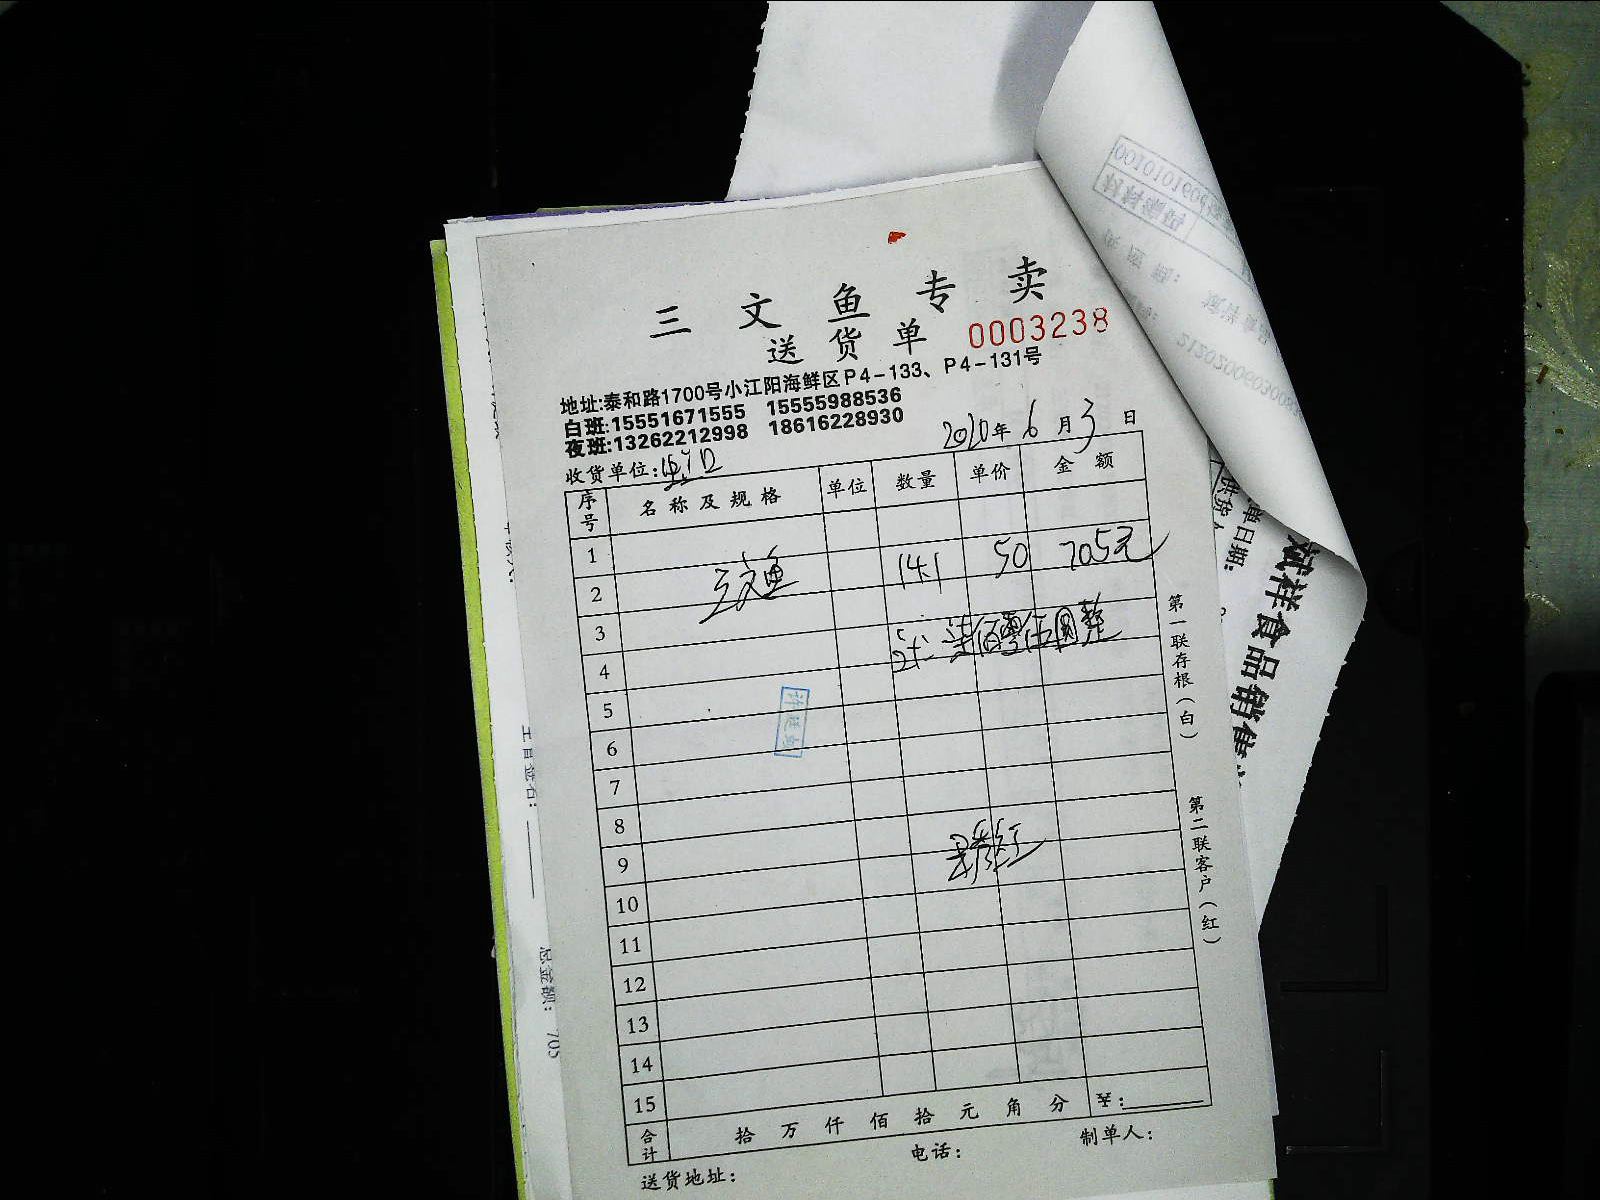 三文鱼专卖
送货单 0003238
地址:泰和路1700号小江阳海鲜区P4-133、P4-131号
白班:15551671555 15555988536
夜班:13262212998 18616228930
2020年6月3日
收货单位:
序号 名称及规格 单位 数量 单价 金额
1
2 三文鱼 14.1 50 705元
3
4 柒佰零伍圆整
5
6
7
8
9
10
11
12
13
14
15
合计 拾 万 仟 佰 拾 元 角 分 ¥:
制单人:
电话:
送货地址:
第一联存根(白)
第二联客户(红)
总金额: 705
单日期:
斌祥食品销售